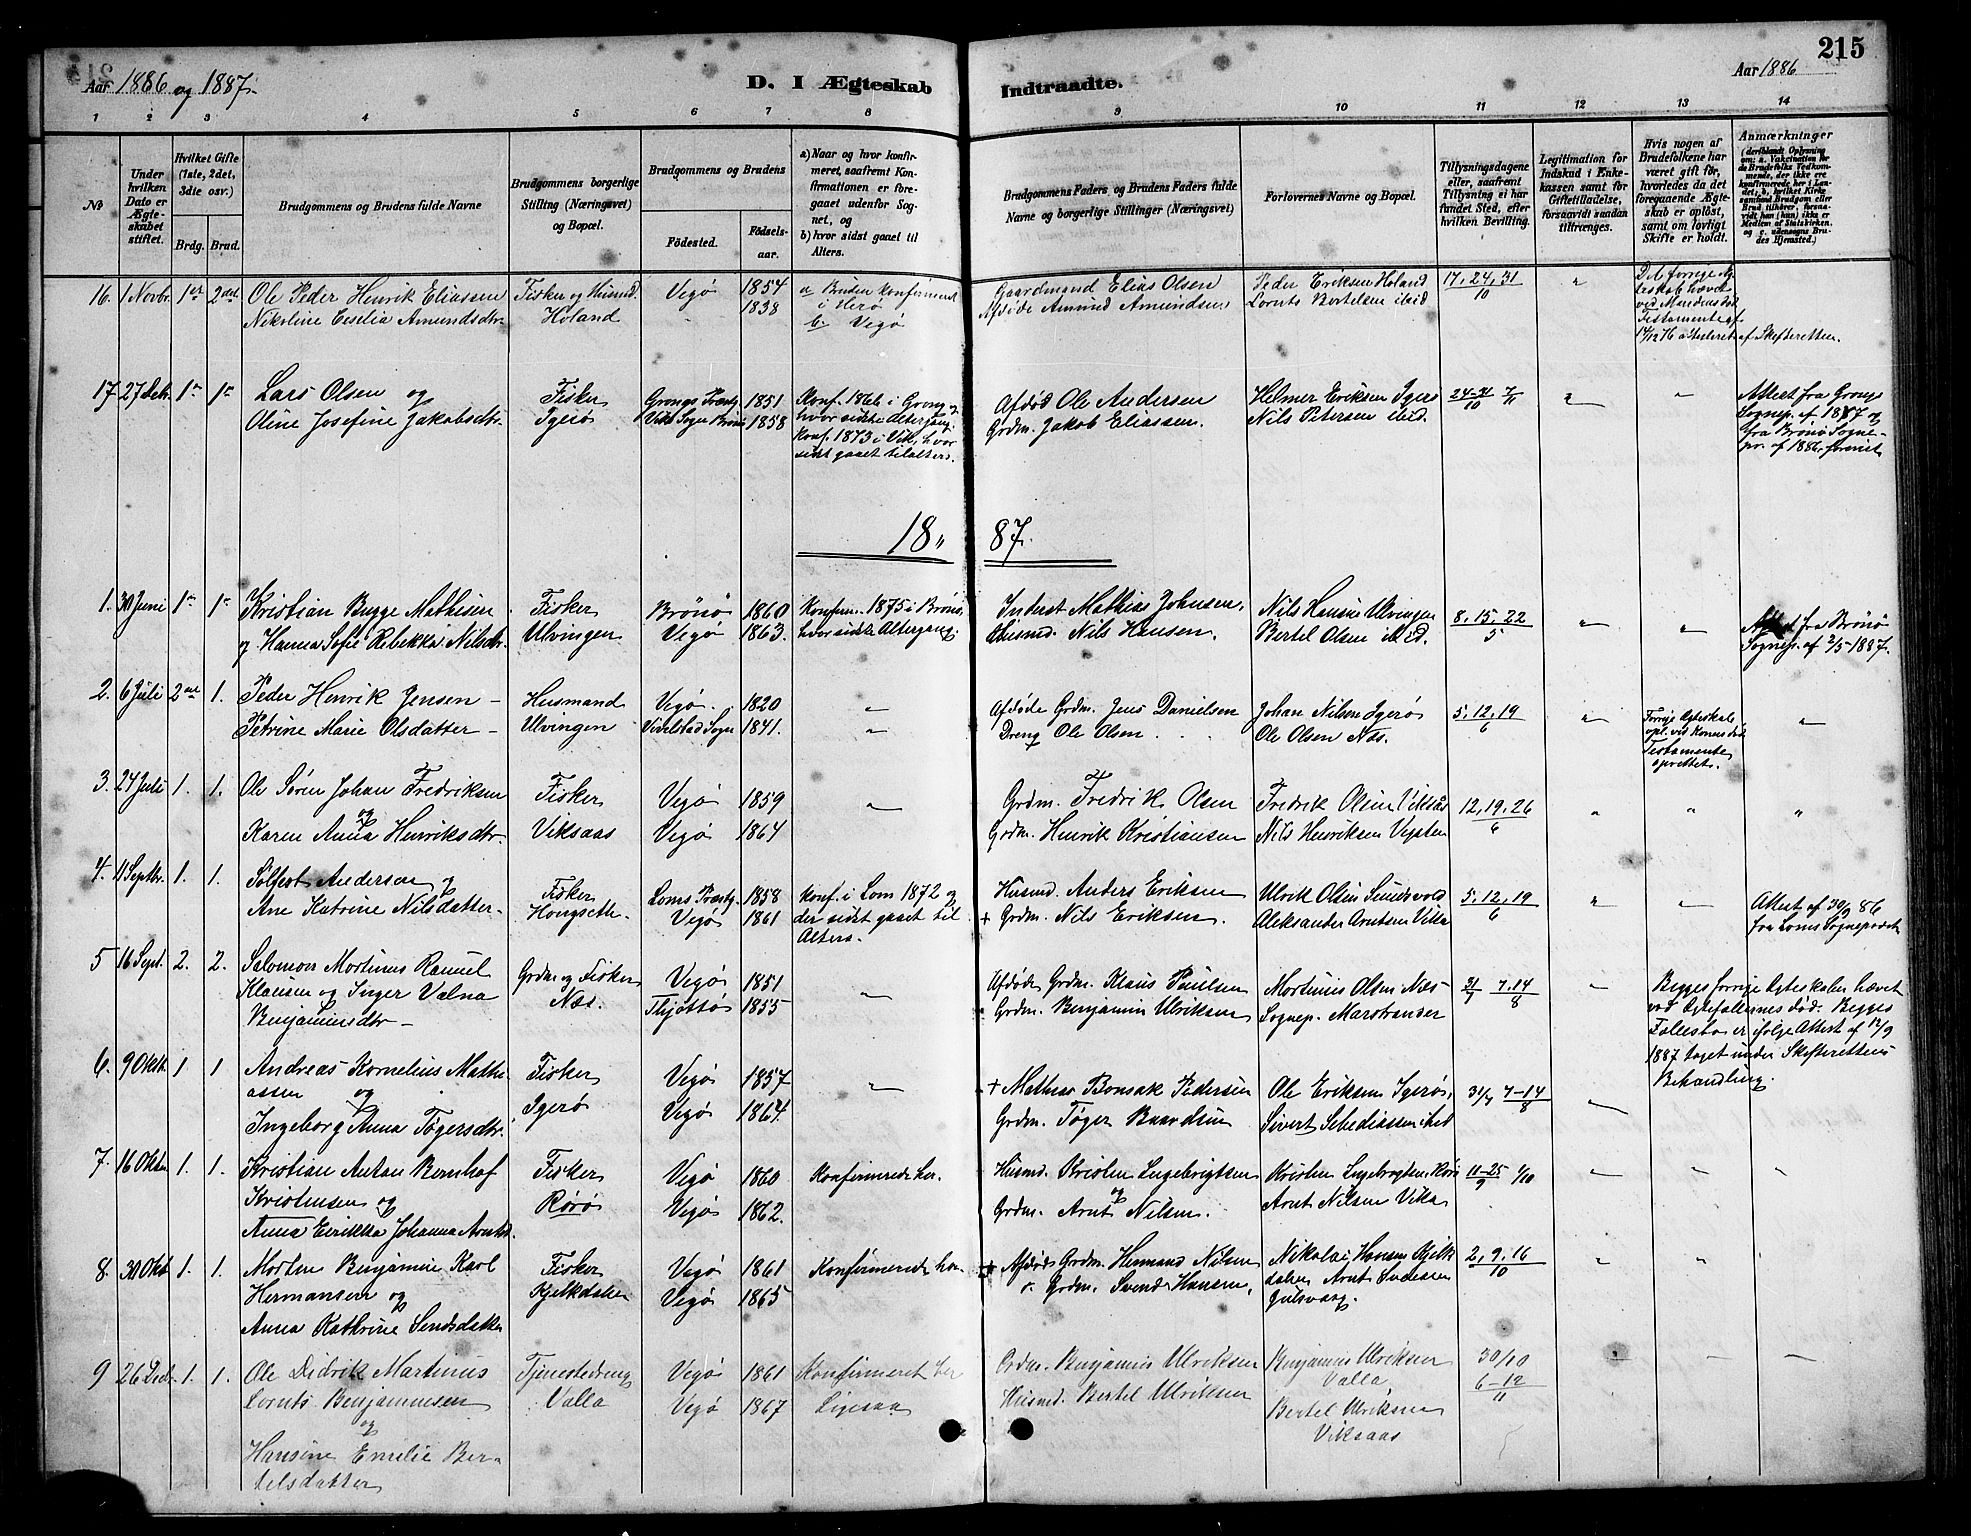 215
Aar 1886 og 1887.
D. I Ægteskab
Indtraadte.
Aar 1886
1 2 3 4 5 6 7 8 9 10 11 12 13 14
No
Under hvilken Dato er Ægteskabet stiftet.
Hvilket Gifte (1ste, 2det, 3die osv.)
Brdg. Brud.
Brudgommens og Brudens fulde Navne
Brudgommens borgerlige Stilling (Næringsvei) og Bopæl.
Brudgommens og Brudens
Fødested.
Fødselsaar.
a) Naar og hvor konfirmeret, saafremt Konfirmationen er foregaaet udenfor Sognet, og
b) hvor sidst gaaet til Alters.
Brudgommens Faders og Brudens Faders fulde Navne og borgerlige Stillinger (Næringsvei)
Forlovernes Navne og Bopæl.
Tillysningsdagene eller, saafremt Tillysning ei har fundet Sted, efter hvilken Bevilling.
Legitimation for Indskud i Enkekassen samt for Giftetilladelse, forsaavidt saadan tiltrænges.
Hvis nogen af Brudefolkene har været gift før, hvorledes da det foregaaende Ægteskab er opløst, samt om lovligt Skifte er holdt.
Anmærkninger
16. 1 Novbr. 1ste 2det Ole Peder Henrik Eliassen Fisker og Husmd. Vegø 1854 a Bruden konfirmeret Gaardmand Elias Olsen Peder Eriksen Holand 17, 24, 31/10 "
Nikoline Cecilia Amundsdtr. Holand 1838 i Herø b. Vegø Afdøde Amund Amundsen Lornts Bertelsen ibid
Det forrige Ægteskab hævet ved Mandens død. Testamente af
af Skifteretten.
17. 27 Dek. 1ste 1ste Lars Olsen og Fisker Grongs Præstg. 1851 Konf. 1866 i Grong og Afdød Ole Andersen Helmer Eriksen Igerø 24-31/10 7/11 " "
Oline Josefine Jakobsdtr. Igerø Viks Sogn Brønø 1858 hvor sidste Altergang. Konf. 1873 i Vik, hvor sidst gaaet til alters. Grdm. Jakob Eliassen. Nils Petersen ibid.
Attest fra Grongs Sognep. af 1887 og fra Brønø Sognepr. af 1886.
18 " 87.
1. 30 Juni 1ste 1ste Kristian Bugge Mathisen Fisker Brønø 1860 Konfirm. 1875 i Brønø, Inderst Mathias Johnsen, Nils Hansen Ulvingen 8. 15. 22/5 " "
og Hanna Sofie Rebekka Nilsdtr. Ulvingen Vegø 1863. hvor sidste Altergang. Husmd. Nils Hansen. Bertel Olsen ibid.
Attest fra Brønø Sognep. af 2/5 1887.
2. 6 Juli 2det 1. Peder Henrik Jensen - Husmand Vegø 1820 " Afdøde Grdm. Jens Danielsen Johan Nilsen Igerø 5, 12, 19/6 "
Petrine Marie Olsdatter - Ulvingen Vevelstad Sogn 1841. " Dreng Ole Olsen Ole Olsen Næs.
Forrige Ægteskab opl. ved Konens død. Testamente oprettet. "
3. 24 Juli 1. 1. Ole Søren Johan Fredriksen Fisker Vegø 1859 " Grdm. Fredrik Olsen Fredrik Olsen Viksås 12, 19, 26/6 " " "
og
Karen Anna Henriksdtr. Viksaas Vegø 1864 Grdm. Henrik Kristiansen Nils Henriksen
4. 11 Septbr. 1. 1. Solfest Anderson og Fisker Loms Præstg. 1858 Konf. i Lom 1872 og Husmd. Anders Eriksen Ulrik Olsen Sundsvold 5, 12, 19/6 " "
Ane Katrine Nilsdatter Hongseth Vegø 1861 der sidst gaaet til Alters. + Grdm. Nils Eriksen. Aleksander Arntsen Vika
Attest af 30/9 86 fra Loms Sognepræst
5 16 Sept. 2. 2. Salomon Mortinus Ramel Grdm og Fisker Vegø 1851 " Afdøde Grdm. Klaus Paulsen Mortinus Olsen Næs 31/7 7.14/8 "
Klausen og Inger Valna Næs. Thjøttø 1855 Grdm. Benjamin Ulriksen Sognep. Marstrander
Benjaminsdtr -
Begges forrige Ægteskaber hævet ved Ægtefællernes død. Begges Fællesbo er ifølge Attest af 12/9 1887 taget under Skifterettens Behandling.
6. 9 Oktb. 1 1 Andreas Kornelius Mathiassen og Fisker Vegø 1857 " + Mathias Bonsak Pedersen Ole Eriksen Igerø, 31/7 7-14/8 "
Ingeborg Anna Tøgersdtr. Igerø Vegø 1864. Grdm. Tøger Baardsen Sivert ibid
7. 16 Oktbr 1. 1. Kristian Antan Bernhof Fisker Vegø 1860 Konfirmerede her. Husmd. Kristen Engebrigtsen Kristen Engebrigtsen Rørø 11-25/9 2/10 " " "
Kristensen og Rørø Vegø 1862. og Grdm. Arnt Nilsen. Arnt Nilsen Vika
Anna Erikka Johanna Arntsd.
8. 30 Oktb 1. 1. Morten Benjamin Karl Fisker Vegø 1861 Konfirmerede her + Afdøde Grdm. Hermand Nilsen Nikolai Hansen Kjelkdalen 2, 9, 16/10 " "
Hermansen og Kjelkdalen Vegø 1865 Grdm. Svend Hansen, Arnt
Anna Kathrine Sendsdatter Gulsvaag.
9 26 Decbr. 1. 1. Ole Didrik Martinus Tjenestedreng Vegø 1861 Konfirmeret her Grdm. Benjamin Ulriksen Benjamin Ulriksen Valla 30/10 " - -
Lornts Benjaminsen Valla Vegø 1867 Ligesaa Husmd. Bertel Ulriksen Bertel Ulriksen Viksaas 6-12/11
og
Hansine Emilie Bertelsdatter